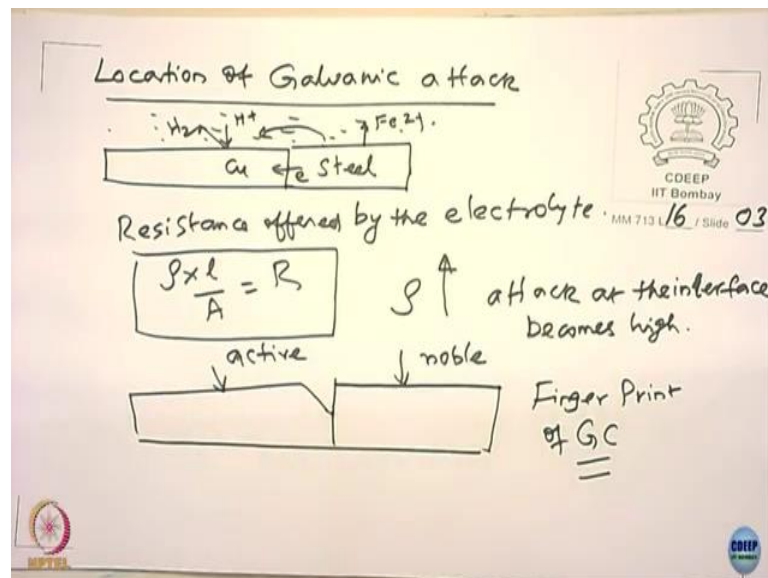 Location of Galvanic attack
H2 H+ Fe2+.
Cu e Steel
CDEEP
IIT Bombay
MM 713 L 16 / Slide 03
Resistance offered by the electrolyte.
ρ x l / A = R
ρ ↑ attack at the interface
becomes high.
active
noble
Finger Print
of GC
NPTEL
CDEEP
IIT BOMBAY